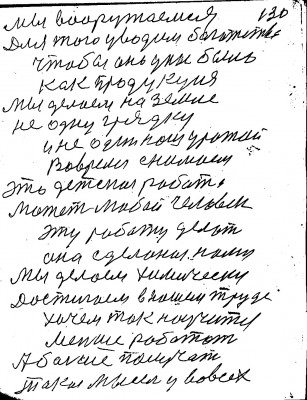 130
Мы вооружаемся
Для того уводим богатства
Чтобы они были
Как продукция
Мы делаем на земле
не одну грядку
и не один урожай
Вовремя снимаем
Это детская работа
Может любой человек
Эту работу делат
она сделана нами
Мы делаем химически
Достигаем в нашем труде
хочем так научится
Меньше работат
А больше получат
Такая мысел у всех